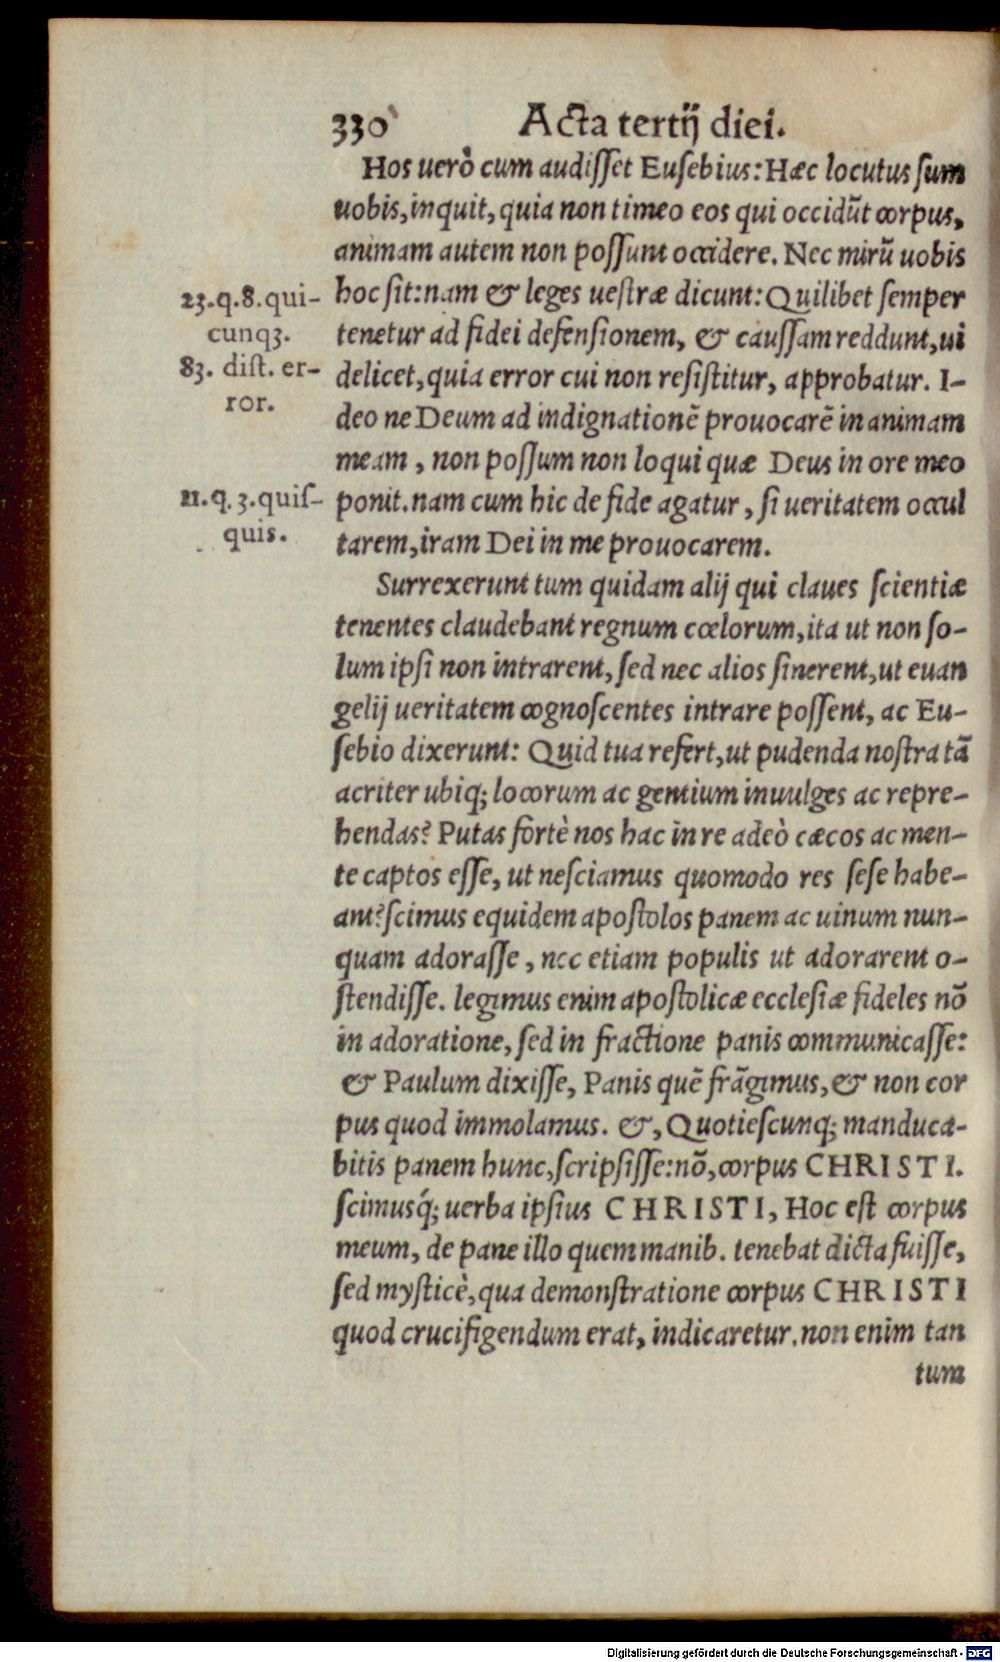 330 Acta tertij diei.
Hos uerò cum audisset Eusebius: Hæc locutus sum
uobis, inquit, quia non timeo eos qui occidūt corpus,
animam autem non possunt occidere. Nec mirū uobis
23.q.8.qui-
cunqꝫ.
83. dist. er-
ror.
hoc sit: nam & leges uestræ dicunt: Quilibet semper
tenetur ad fidei defensionem, & caussam reddunt, ui
delicet, quia error cui non resistitur, approbatur. I-
deo ne Deum ad indignationē prouocarē in animam
meam, non possum non loqui quæ Deus in ore meo
21.q.3.quis-
quis.
ponit. nam cum hic de fide agatur, si ueritatem occul
tarem, iram Dei in me prouocarem.
Surrexerunt tum quidam alij qui claues scientiæ
tenentes claudebant regnum cœlorum, ita ut non so-
lum ipsi non intrarent, sed nec alios sinerent, ut euan
gelij ueritatem cognoscentes intrare possent, ac Eu-
sebio dixerunt: Quid tua refert, ut pudenda nostra tā
acriter ubiq; locorum ac gentium inuulges ac repre-
hendas? Putas fortè nos hac in re adeò cæcos ac men-
te captos esse, ut nesciamus quomodo res sese habe-
ant? scimus equidem apostolos panem ac uinum nun-
quam adorasse, nec etiam populis ut adorarent o-
stendisse. legimus enim apostolicæ ecclesiæ fideles nō
in adoratione, sed in fractione panis communicasse:
& Paulum dixisse, Panis quē frāgimus, & non cor
pus quod immolamus. &, Quotiescunq; manduca-
bitis panem hunc, scripsisse: nō, corpus CHRISTI.
scimusq́; uerba ipsius CHRISTI, Hoc est corpus
meum, de pane illo quem manib. tenebat dicta fuisse,
sed mysticè, qua demonstratione corpus CHRISTI
quod crucifigendum erat, indicaretur. non enim tan
tum
Digitalisierung gefördert durch die Deutsche Forschungsgemeinschaft - DFG